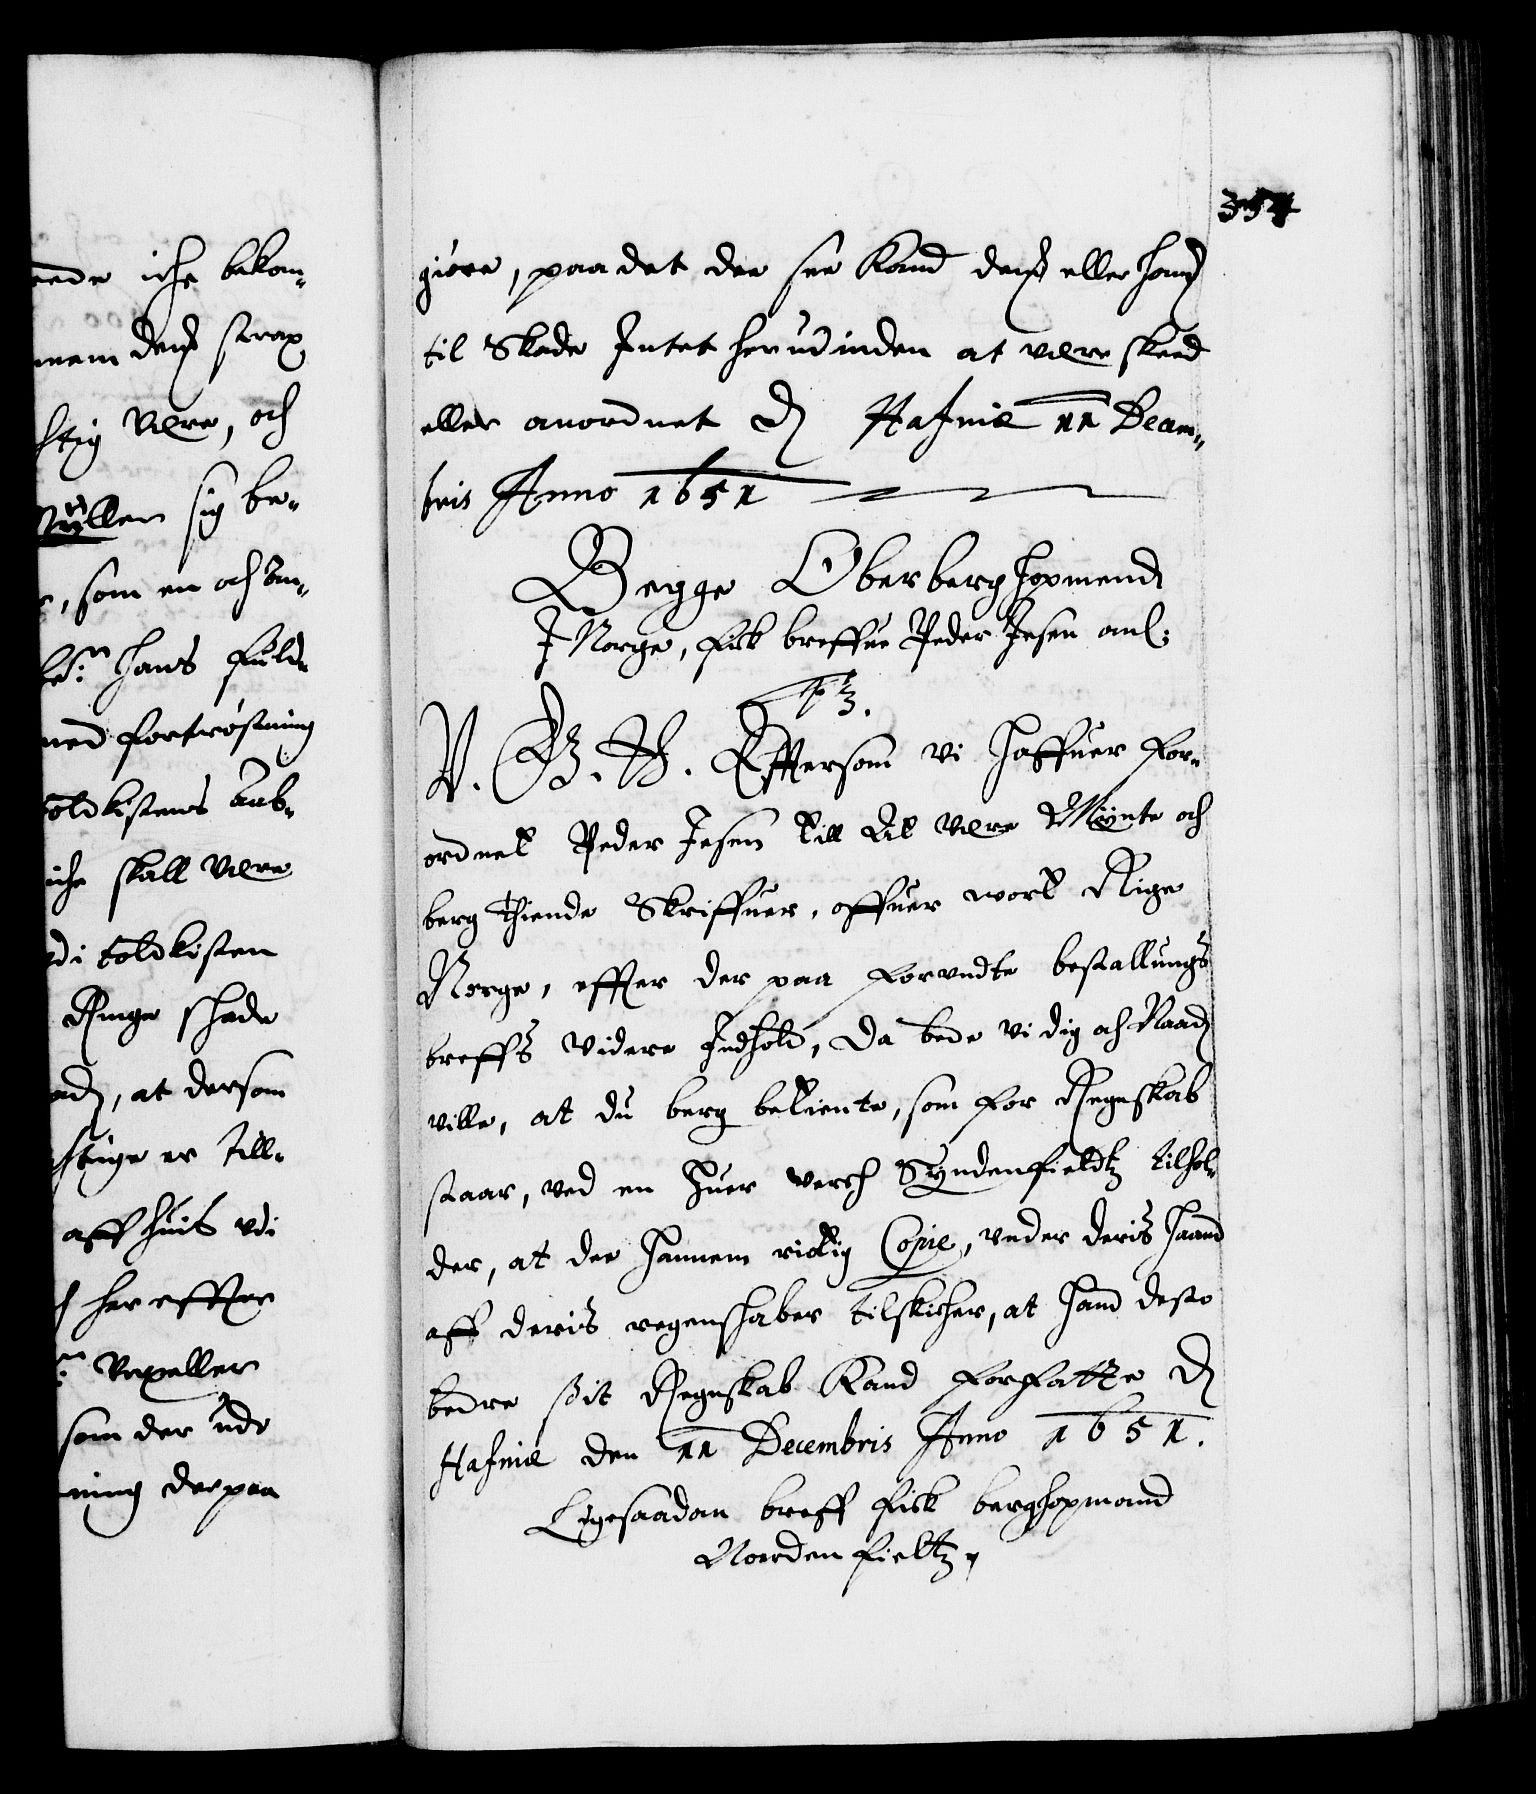 354
eede iche bekom-
nem dend strax
htig Vere, och
Müller sig be-
som en och An-
hans fuld-
med fortröstning
toldkistens Aab-
iche skall Vere
di toldkisten
Ringe skade
at dersom
stinge er till-
aff huis vdi
her effter
Vexeller
som der ude
ning derpaa
giøre, paa det der see Kand dend eller hand
til Skade Intet herudinden at vere skeed
eller anordnet D Hafniæ 11 Decem-
bris Anno 1651
Begge Oberberghopmend
I Norge, fik breffue Peder Jesen anl:
V. G. W. Effttersom vi haffuer For-
ordnet Peder Jesen till At Vere Mynte och
berg Thiende Skriffuer, offuer wort Rige
Norge, effter der paa Forundte bestallungs
breffs Videre Indhold, Da bede vi dig och Naad
ville, at du berg betiente, som for Regnskab
staar, ved en huer werch Syndenfieldtz tilhol-
der, at de hannem rictig Copie, under deris haand
aff deris regenskaber tilskicher, at hand desto
bedre sit Regnskab Kand forfatte D
Hafniæ den 11 Decembris Anno 1651.
Ligesaadan breff fik berghopmand
Norden fieltz